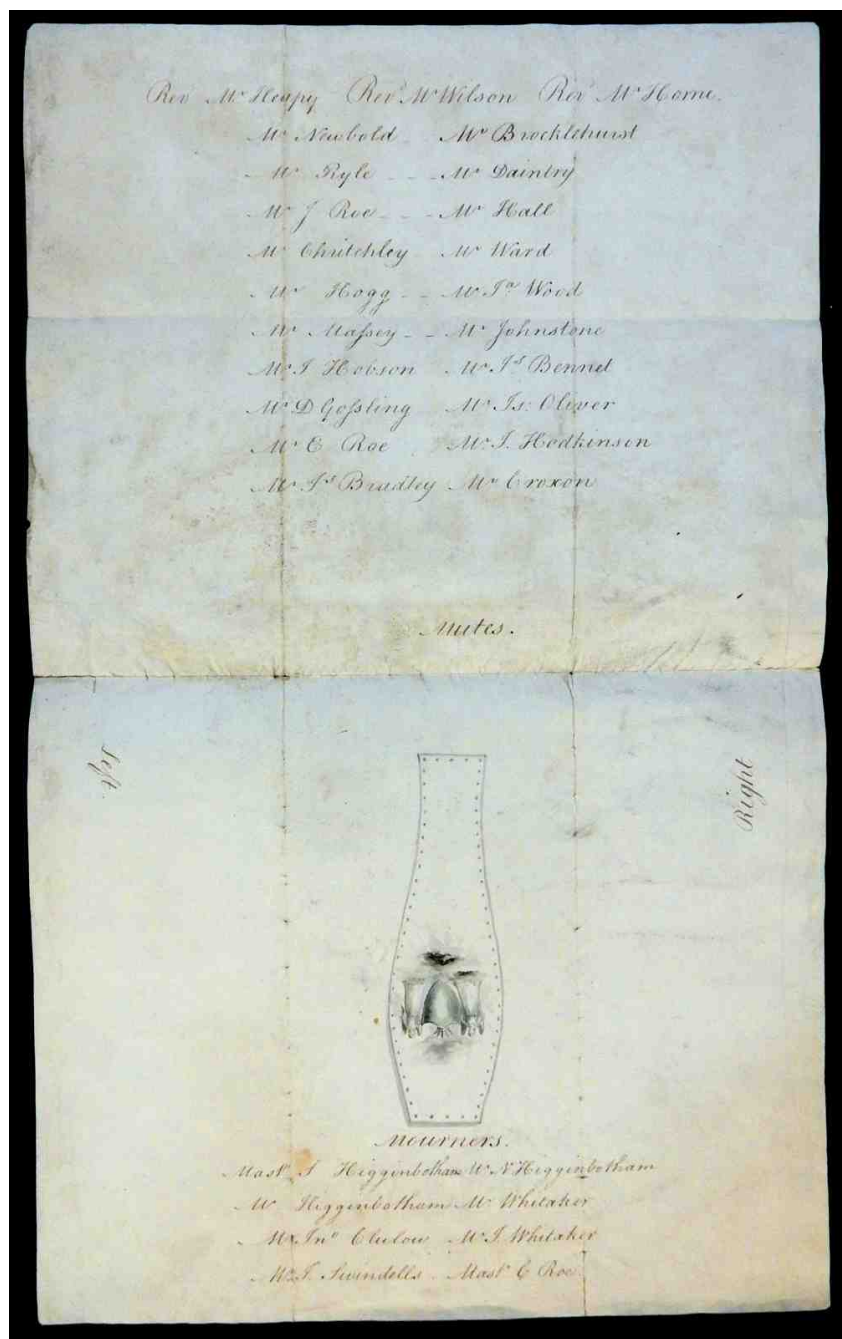 Rev Mr Heapy Revd Mr Wilson Revd Mr Horne.
Mr Newbold - Mr Brocklehurst
Mr Ryle - - Mr Daintry
Mr J Roe - - Mr Hall
Mr Chritchley Mr Ward
Mr Hogg - - Mr Jn Wood
Mr Maſsey - - Mr Johnstone
Mr J Hobson Mr Js Bennet
Mr D Goſsling Mr Is: Oliver
Mr E Roe Mr J. Hodkinson
Mr Js Bradley Mr Croxon
Mutes.
Left
Right
Mourners.
Mastr J Higginbotham Mr N Higginbotham
Mr Higginbotham Mr Whitaker
Mr Jno Clulow Mr J. Whitaker
Mr J. Swindells Mastr E Roe